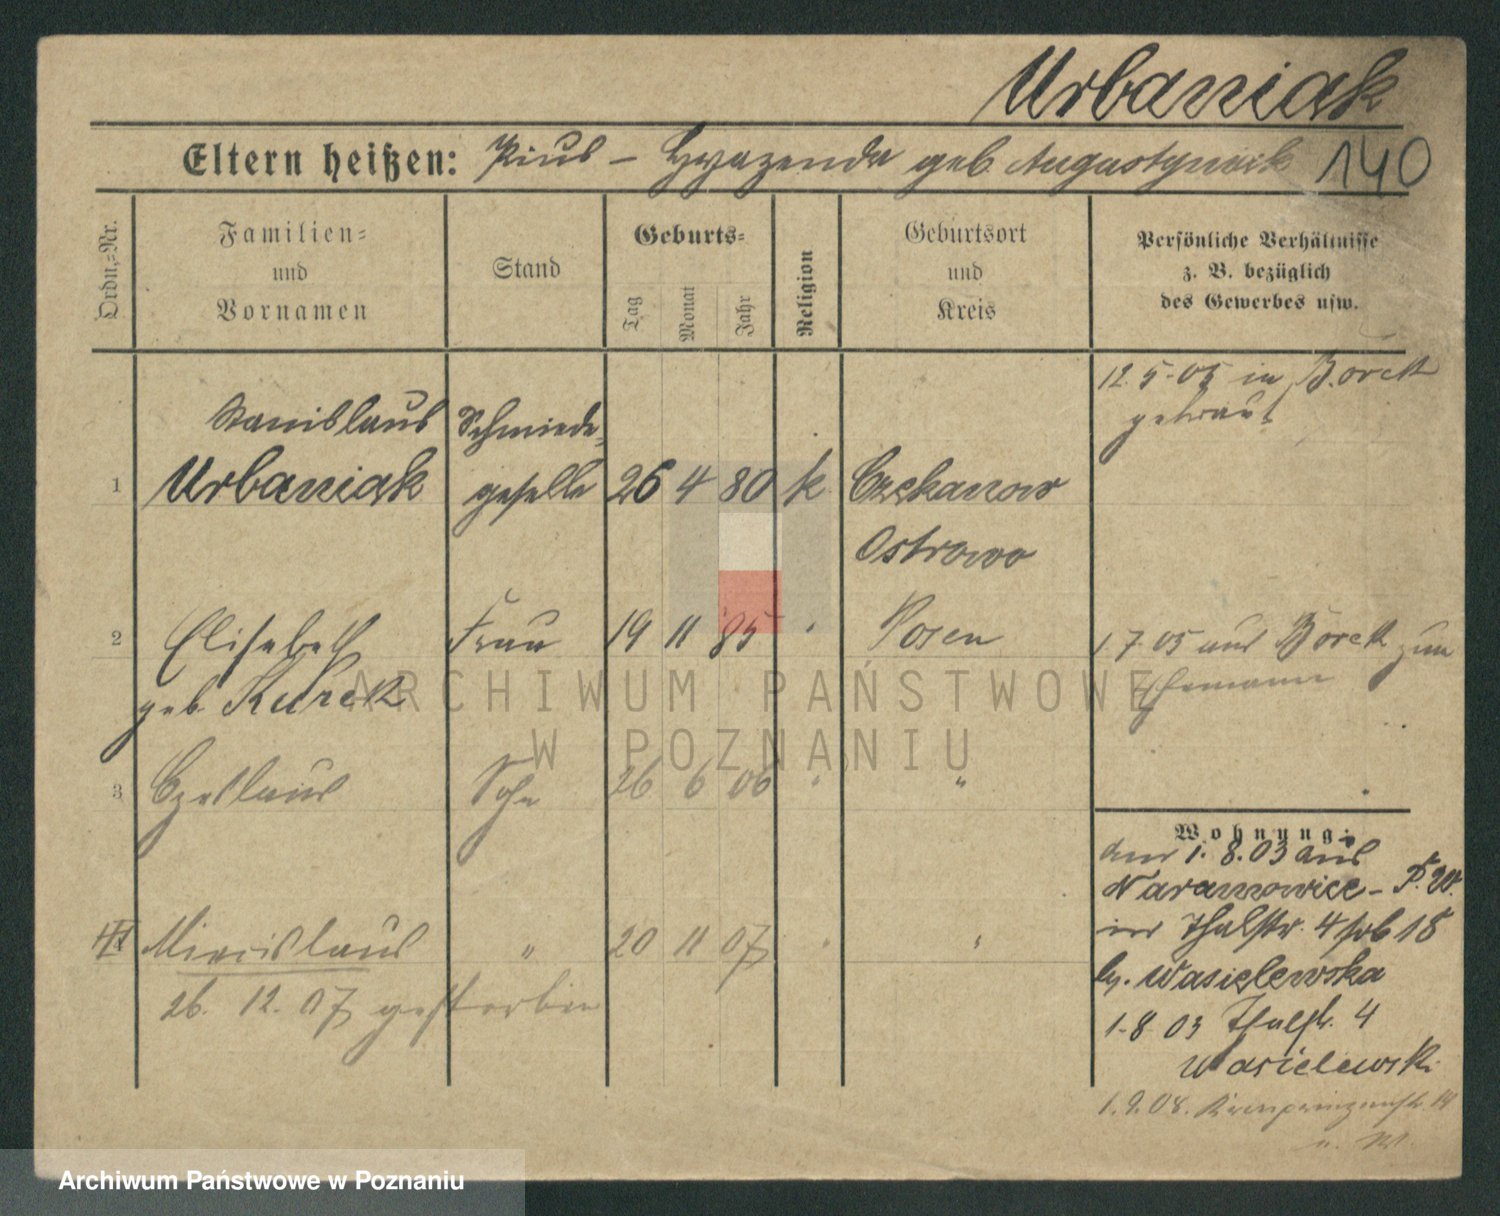 Urbaniak
Eltern heißen: Pius – geb. Augustyniak 140
Ordn.-Nr.
Familien- und Vornamen
Stand
Geburts-
Tag
Monat
Jahr
Religion
Geburtsort und Kreis
Persönliche Verhältnisse
z. B. bezüglich
des Gewerbes usw.
12.5.05 in Borek
getraut
Stanislaus Schmiede-
1 Urbaniak geselle 26 4 80 k Czekanow
Ostrowo
2 Elisabeth Frau 19 11 85 " Posen
geb. Kurek
1.7.05 aus Borek zum
Ehemann
3 Czeslaus Sohn 26 6 06 " "
4 Miecislaus " 20 11 07 " "
26. 12. 07 gestorben
Wohnung:
am 1. 8. 03 aus
Naramowice – P. W.
in Thalstr. 4 15
b. Wasielewska
1.8 03 Thalstr. 4
Wasielewski
1.9.08. Kronprinzenstr.
ARCHIWUM PAŃSTWOWE
W POZNANIU
Archiwum Państwowe w Poznaniu